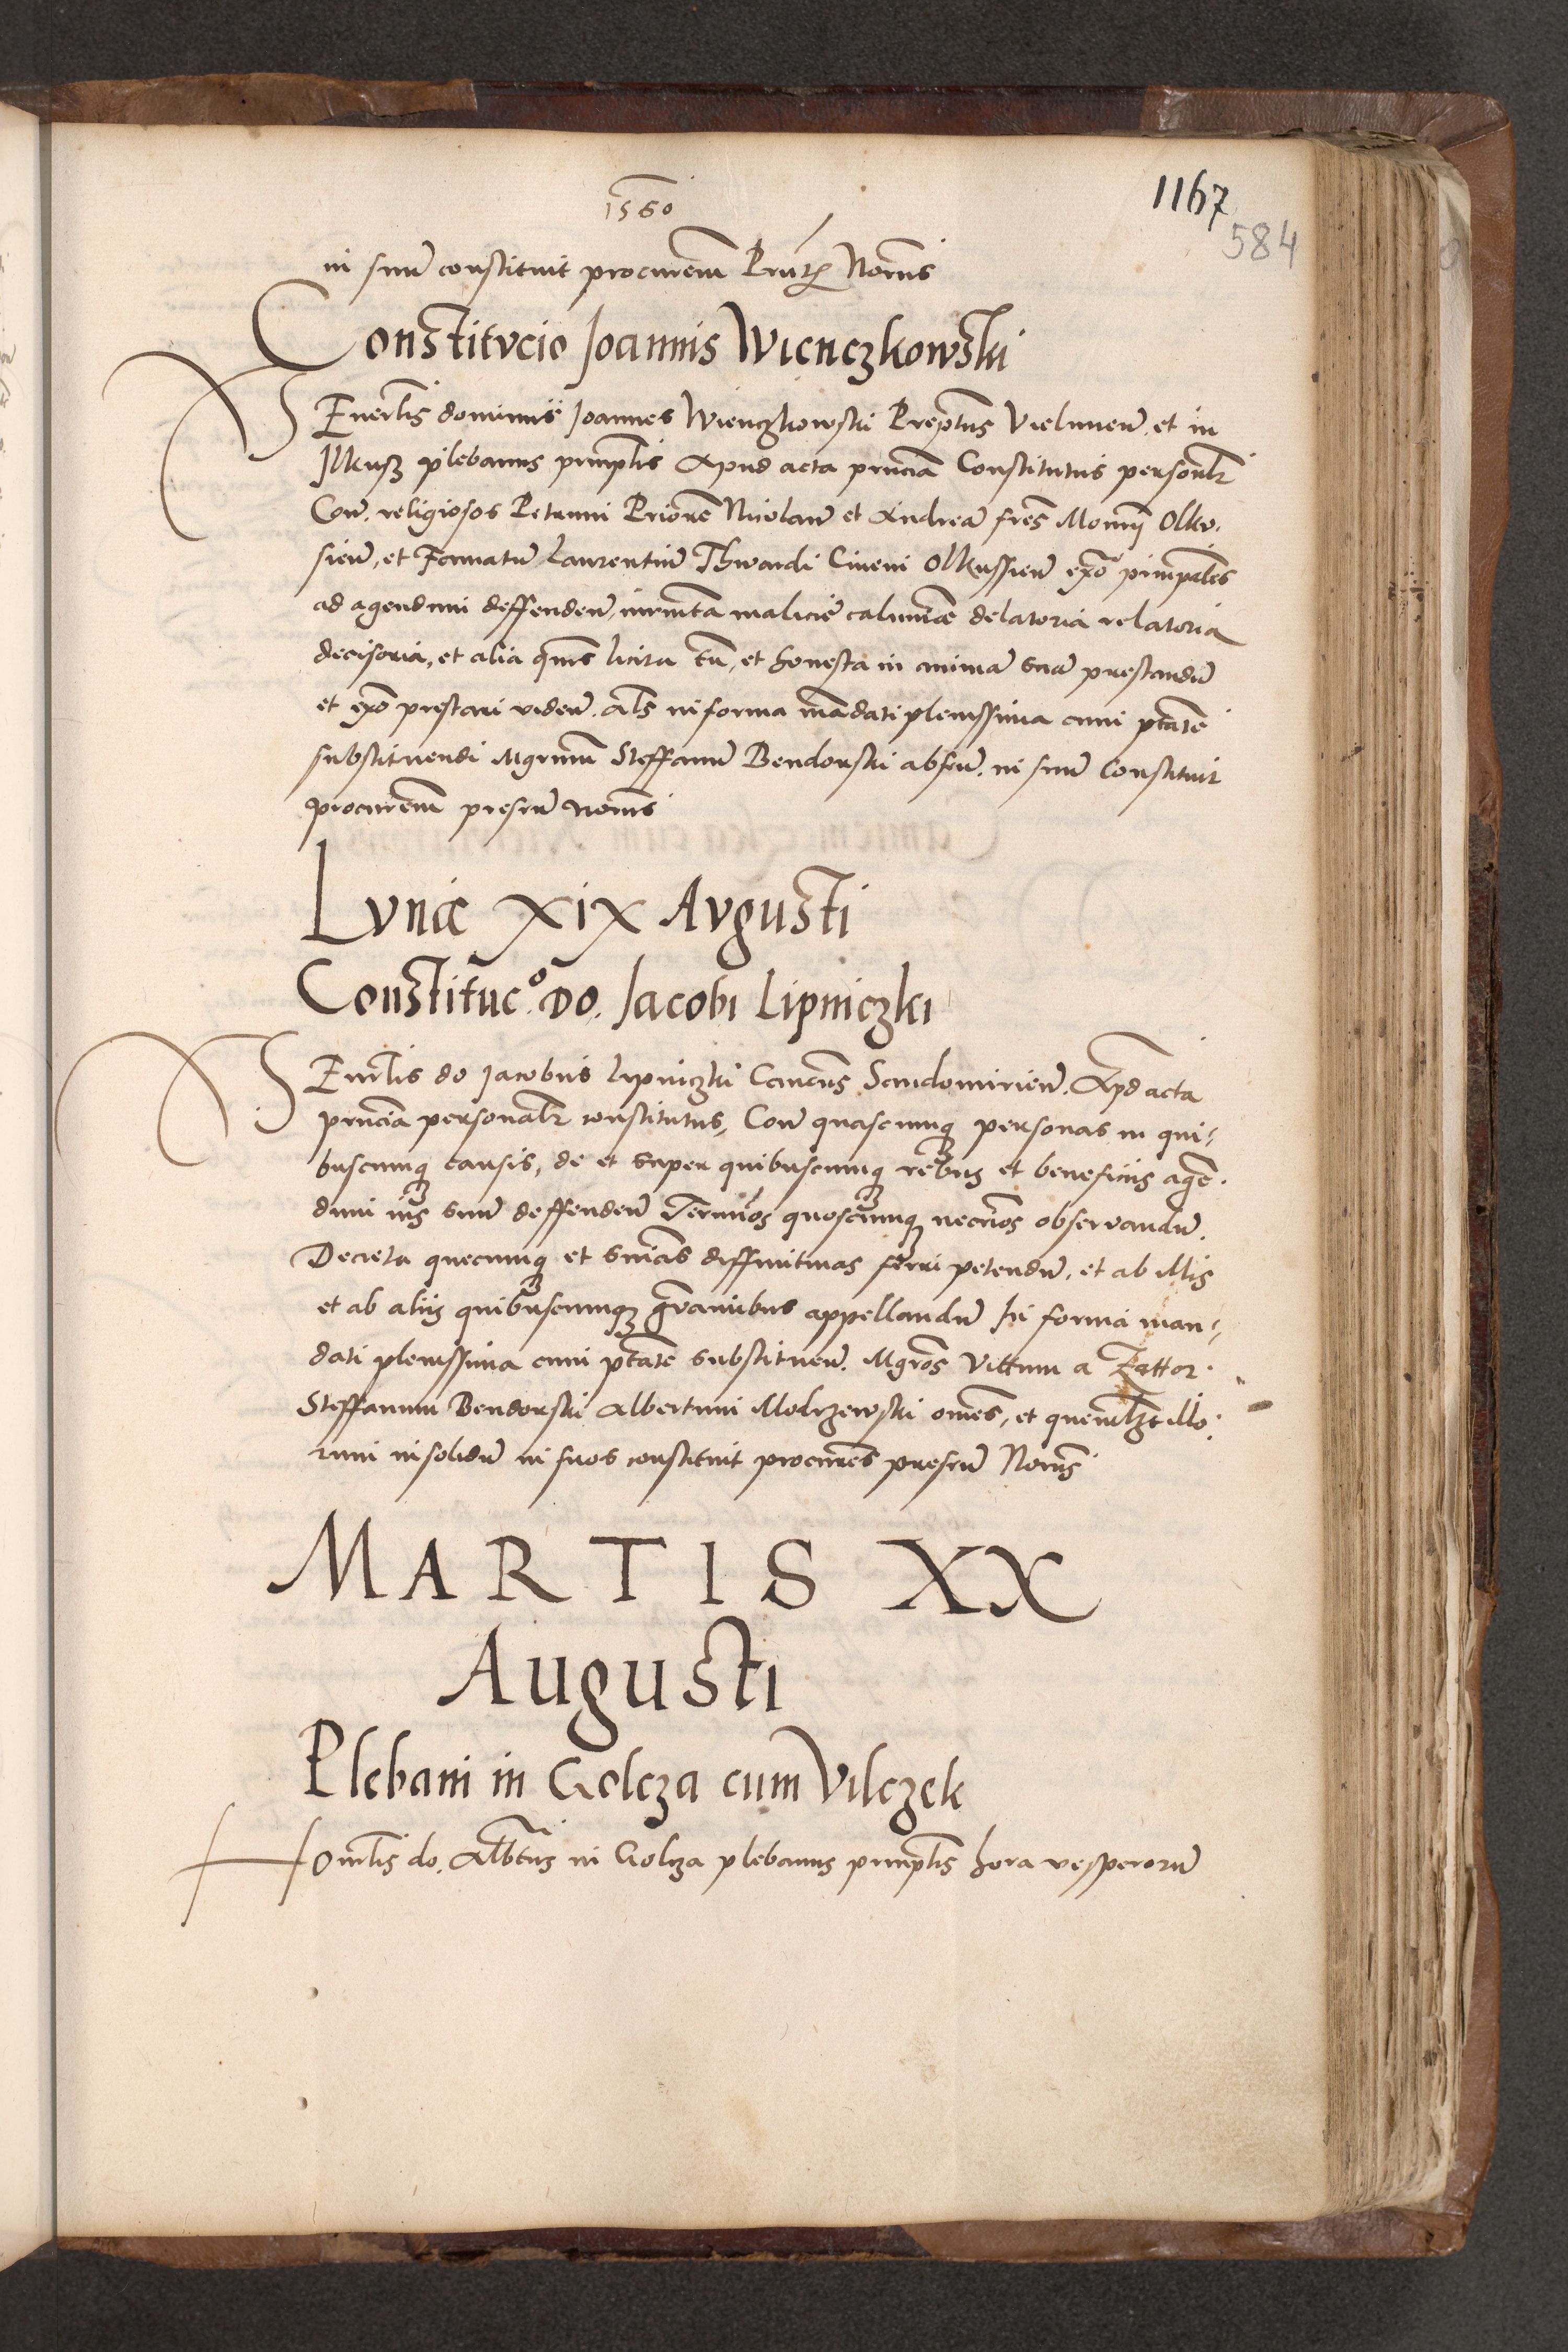 1560
1167
584
in suum constituit procurem Prntꝝ Noriis
Constitvcio Joannis Wienczkowski
VEnerlis dominus Joannes Wienczkowski Preptus Vielunen. et in
Jlkusz plebanus prinplis Apud acta prncia Constitutus personlr
Con. religiosos Petrum Priore Nicolau et Andrea fres Monrii Olku-
sien, et Famatu Laurentiu Thwardi Civem Olkussien expo prinpales
ad agendum deffenden, iurmta malicie calumae delatoria relatoria
decisoria, et alia quis licita tn, et honesta in anima sua prestandu
et expo prestari viden. Als in forma madati plenissima cum ptate
substituendi Mgrum Steffanu Bendonski absen. in suum Constituit
procurem presen noriis
Lvnæ XIX Avgusti
Constituc.o Do. Jacobi Lipniczki
VEnrlis do Jacobus Lipniczki Cancus Sandomirien. Apd acta
prncia personalr constitutus, Con quascunq personas in qui-
buscunq causis, de et super quibuscunq rebus et beneficiis agen-
dum ius suum deffenden Termios quoscunq necrios observandu.
Decreta quecunq et snias diffinitivas ferri petendu, et ab illis
et ab aliis quibuscunq gravaibus appellandu In forma man-
dati plenissima cum ptate substituen. Mgros Vittum a
Steffanum Bendonski Albertum Modrzewski omes, et quemlzt illo-
rum insolidu in suos constituit procures presen Noriis
MARTIS XX
Augusti
Plebani in Golcza cum Vilczek
Honrlis do. Albtus in Golcza plebanus prinplis hora vesperoru